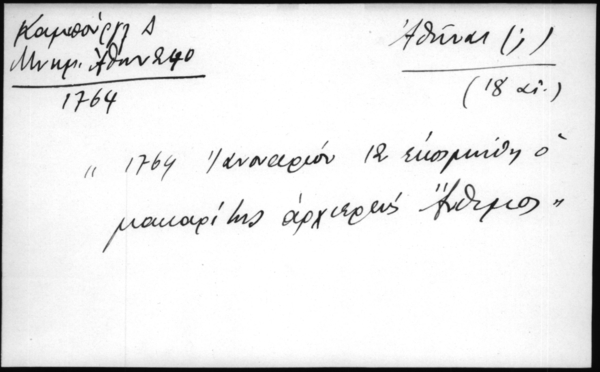 Καμπούργλ Δ
Μνημ. Ἀθην 240
1764
Ἀθῆναι (;)
(18 αἰ.)
„ 1764 Ἰαννουαρίου 12 ἐκοιμήθη ὁ
μακαρίτης ἀρχιερεύς Ἄνθιμος „